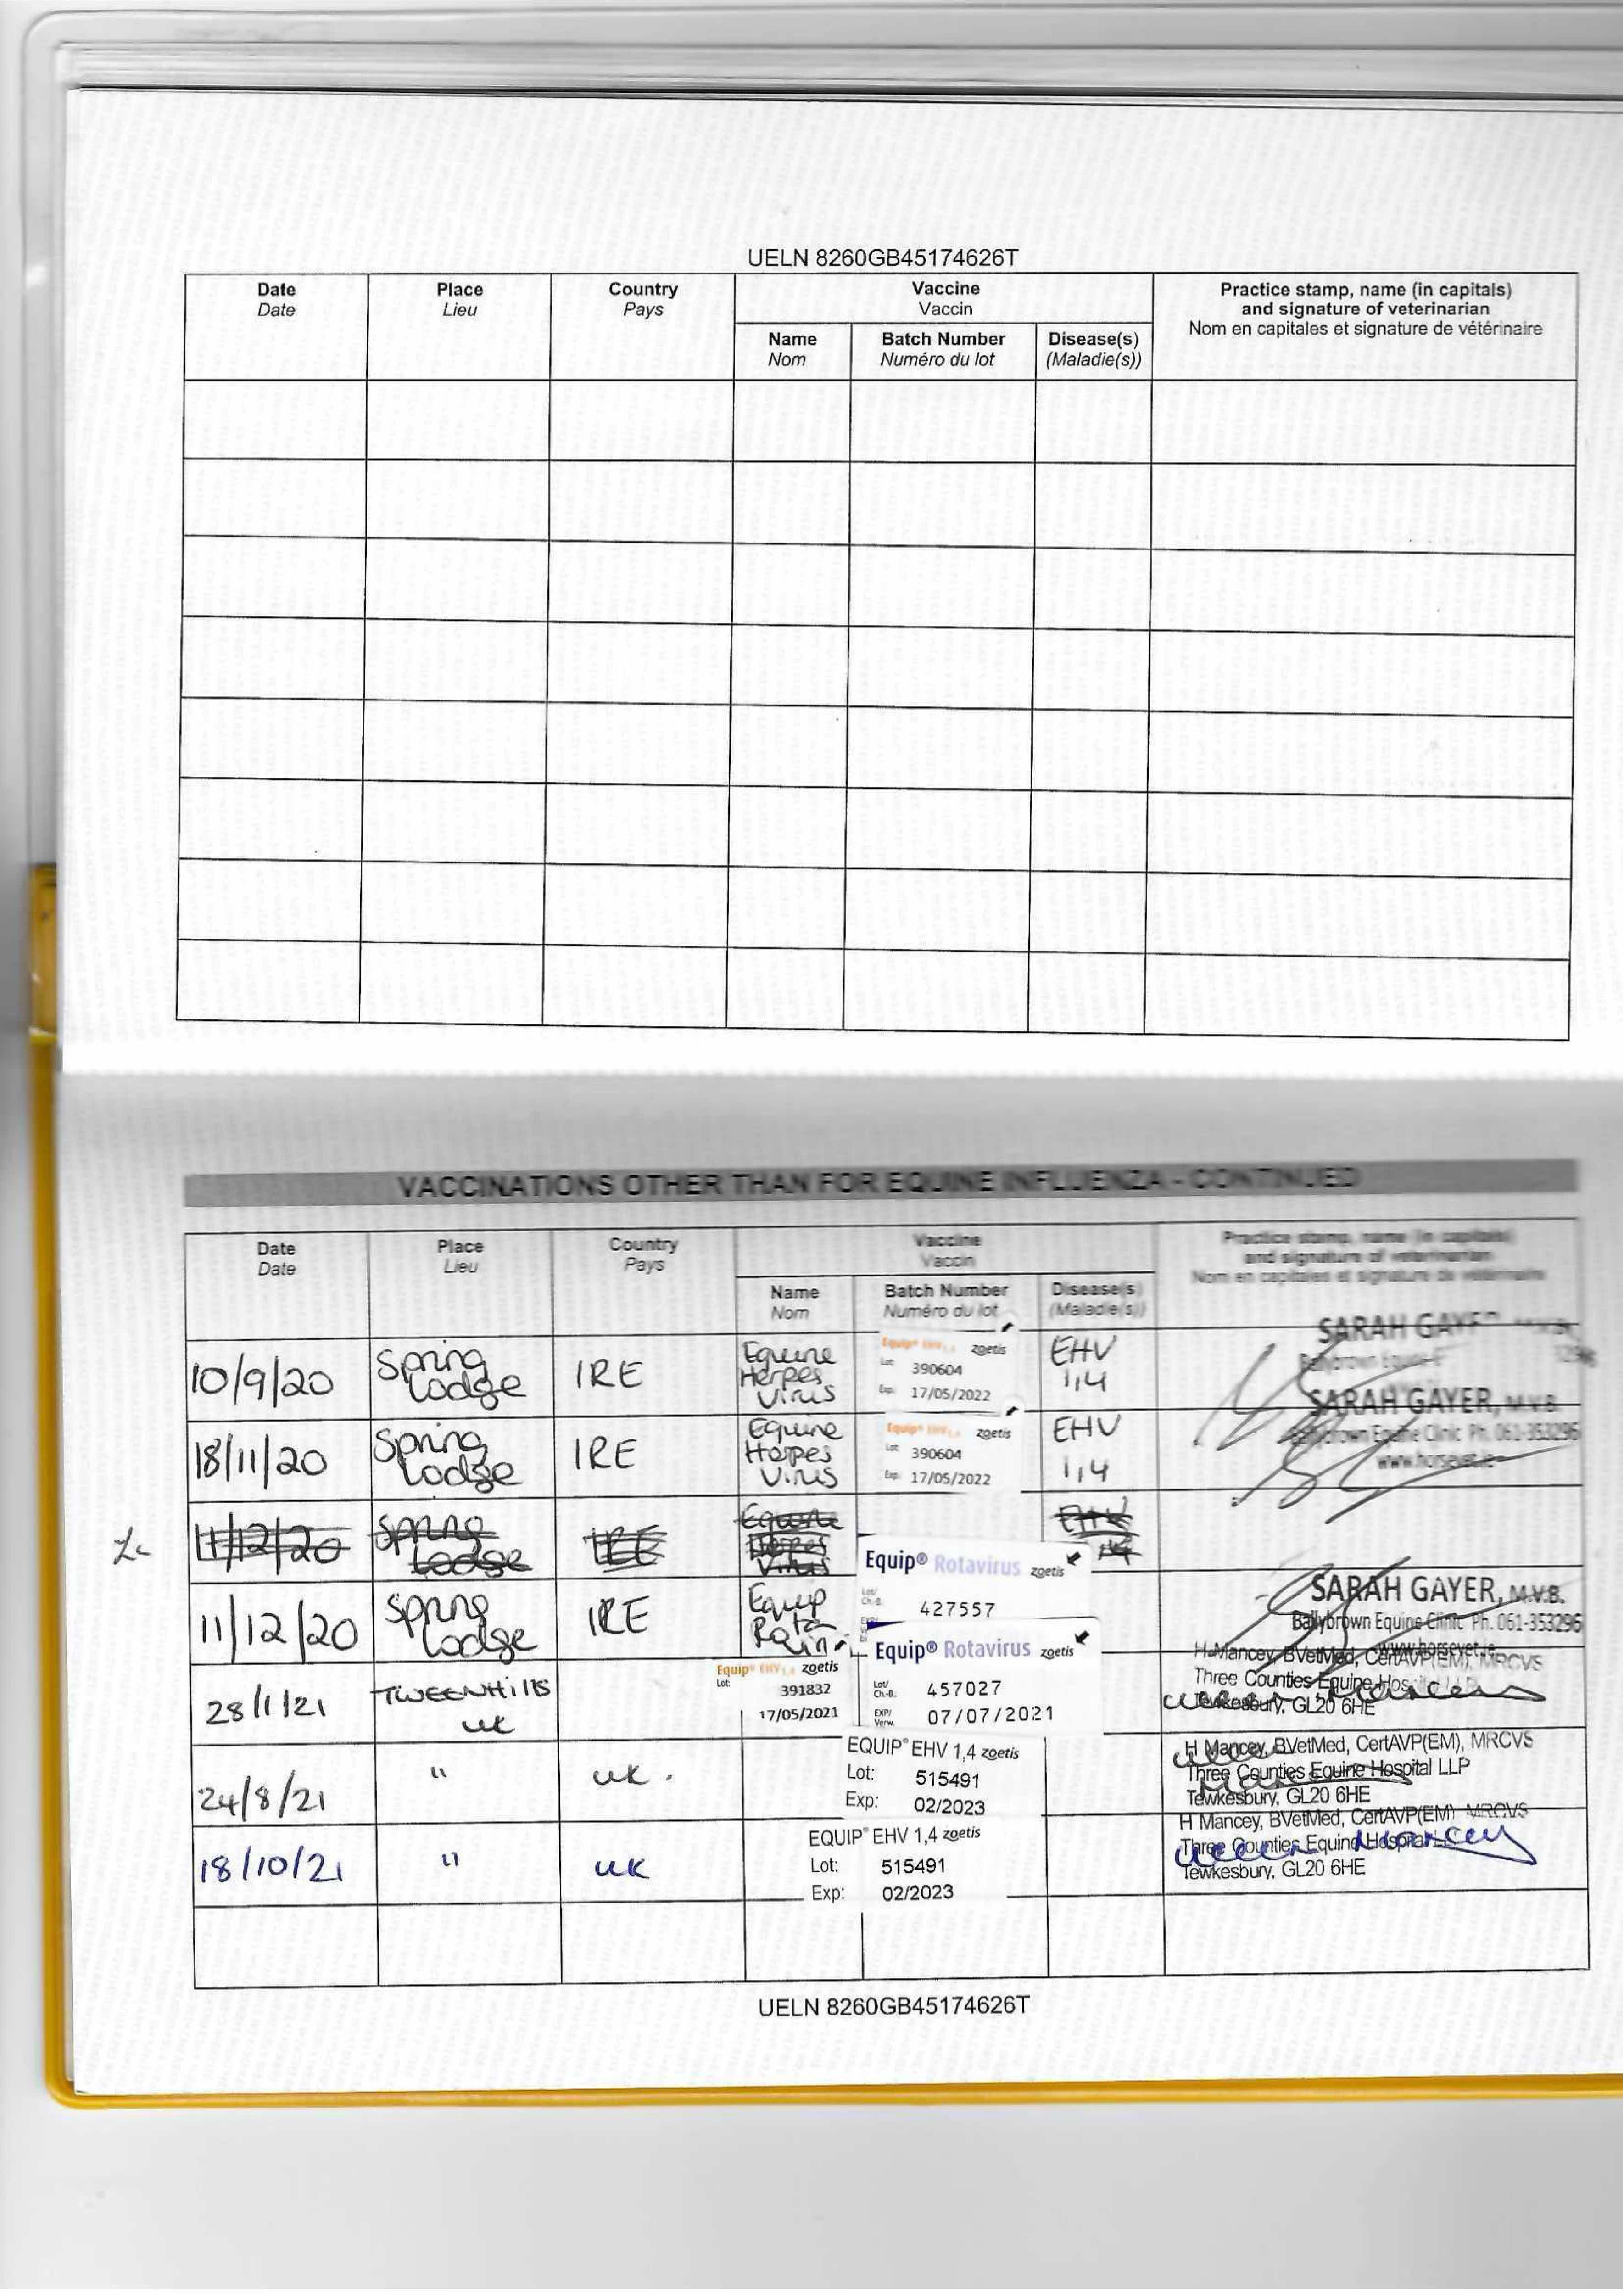 UELN 8260GB45174626T
Date
Date
Place
Lieu
Country
Pays
Vaccine
Vaccin
Name
Nom
Batch Number
Numéro du lot
Disease(s)
(Maladie(s))
Practice stamp, name (in capitals)
and signature of veterinarian
Nom en capitales et signature de vétérinaire
VACCINATIONS OTHER THAN FOR EQUINE INFLUENZA - CONTINUED
Date
Date
Place
Lieu
Country
Pays
Vaccine
Vaccin
Name
Nom
Batch Number
Numéro du lot
Disease(s)
(Maladie(s))
Practice stamp, name (in capitals)
and signature of veterinarian
Nom en capitales et signature de vétérinaire
10/9/20
Spring
Lodge
IRE
Equine
Herpes
Virus
Equip® EHV 1,4 zoetis
Lot 390604
Exp. 17/05/2022
EHV
1,4
SARAH GAYER
18/11/20
Spring
Lodge
IRE
Equine
Herpes
Virus
Equip® EHV 1,4 zoetis
Lot 390604
Exp. 17/05/2022
EHV
1,4
SARAH GAYER, M.V.B.
Ballybrown Equine Clinic Ph. 061-353296
www.horsevet.ie
11/12/20
Spring
Lodge
IRE
Equine
Herpes
Virus
EHV
1,4
11/12/20
Spring
Lodge
IRE
Equip
Equip® Rotavirus zoetis
Lot/
Ch.-B.
427557
SARAH GAYER, M.V.B.
Ballybrown Equine Clinic Ph. 061-353296
www.horsevet.ie
28/1/21
TWEENHills
UK
Equip® EHV 1,4 zoetis
Lot: 391832
17/05/2021
Equip® Rotavirus zoetis
Lot/
Ch.-B. 457027
EXP/
Verw. 07/07/2021
H Mancey, BVetMed, CertAVP(EM), MRCVS
Three Counties Equine Hos
Tewkesbury, GL20 6HE
24/8/21
"
UK.
EQUIP® EHV 1,4 zoetis
Lot: 515491
Exp: 02/2023
H Mancey, BVetMed, CertAVP(EM), MRCVS
Three Counties Equine Hospital LLP
Tewkesbury, GL20 6HE
18/10/21
"
UK
EQUIP® EHV 1,4 zoetis
Lot: 515491
Exp: 02/2023
H Mancey, BVetMed, CertAVP(EM) MRCVS
Three Counties Equine Hospital
Tewkesbury, GL20 6HE
UELN 8260GB45174626T